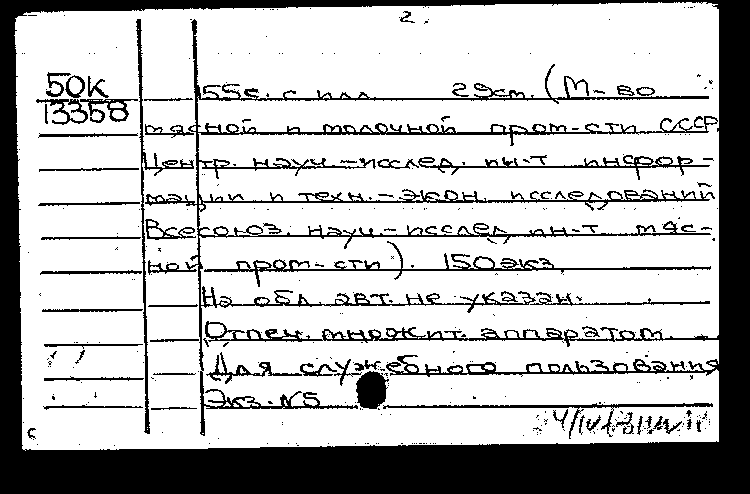 2.
50К 55с. с илл. 29см. (М-во
13358
мясной и молочной пром-сти СССР.
Центр. науч.-исслед. ин-т инфор-
мации и техн.-экон. исследований
Всесоюз. науч.-исслед ин-т мяс-
ной пром-сти). 150экз.
На обл. авт. не указан.
Отпеч. множит. аппаратом.
Для служебного пользования
Экз. №5
с